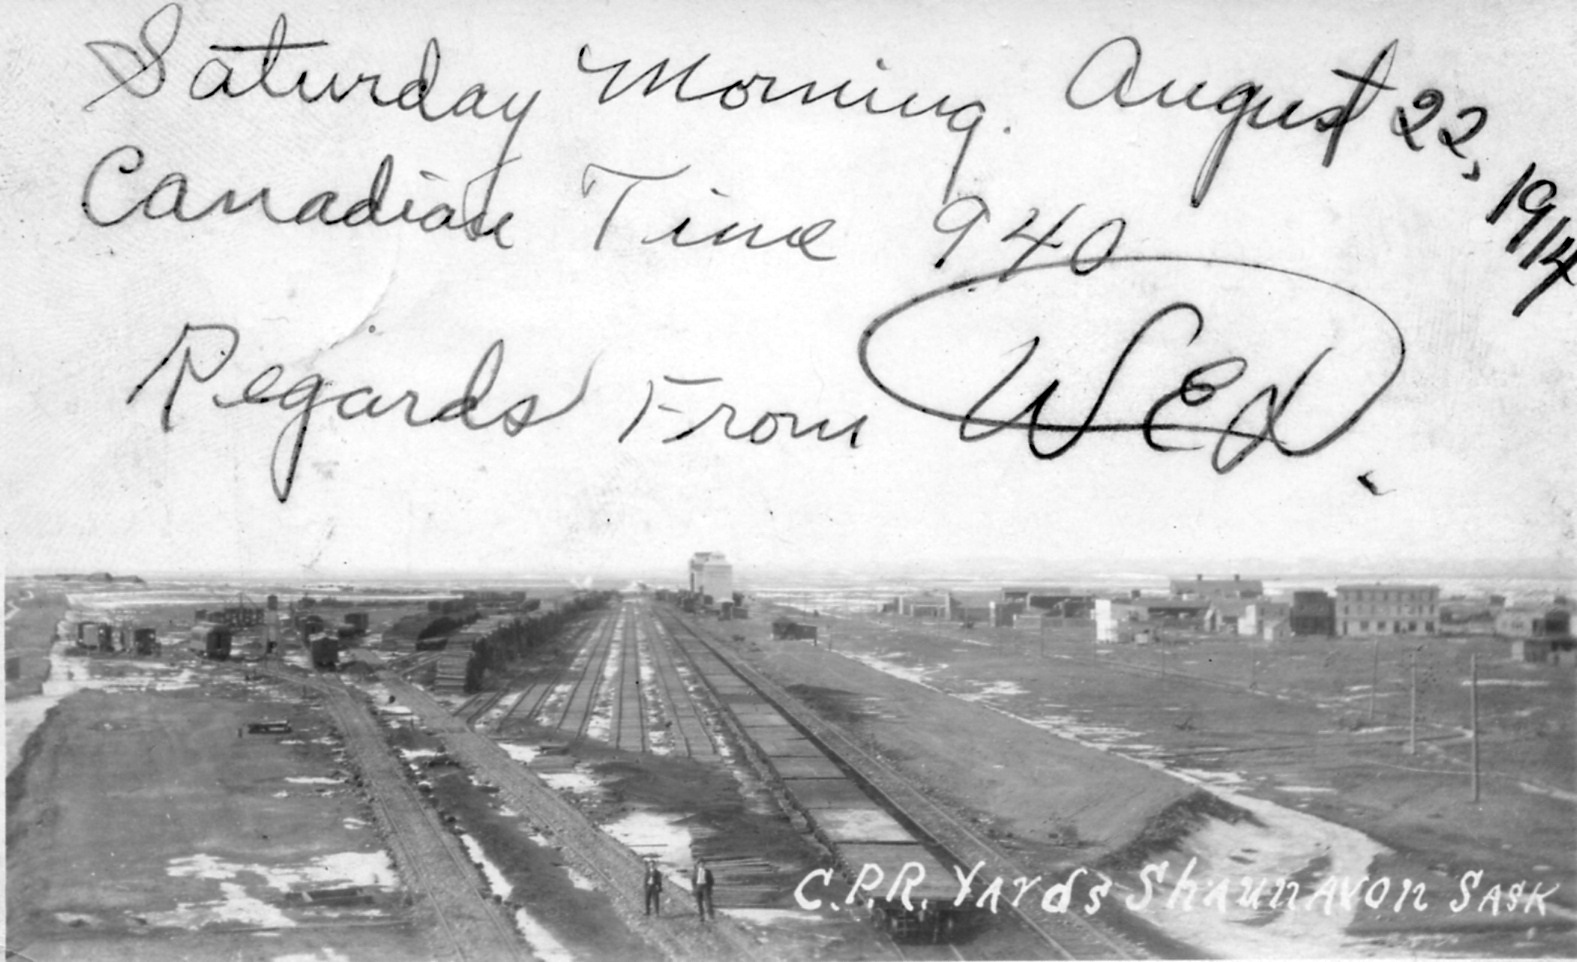 Saturday Morning. August 22, 1914
Canadian Time 940
Regards From
C.P.R. Yards Shaunavon Sask